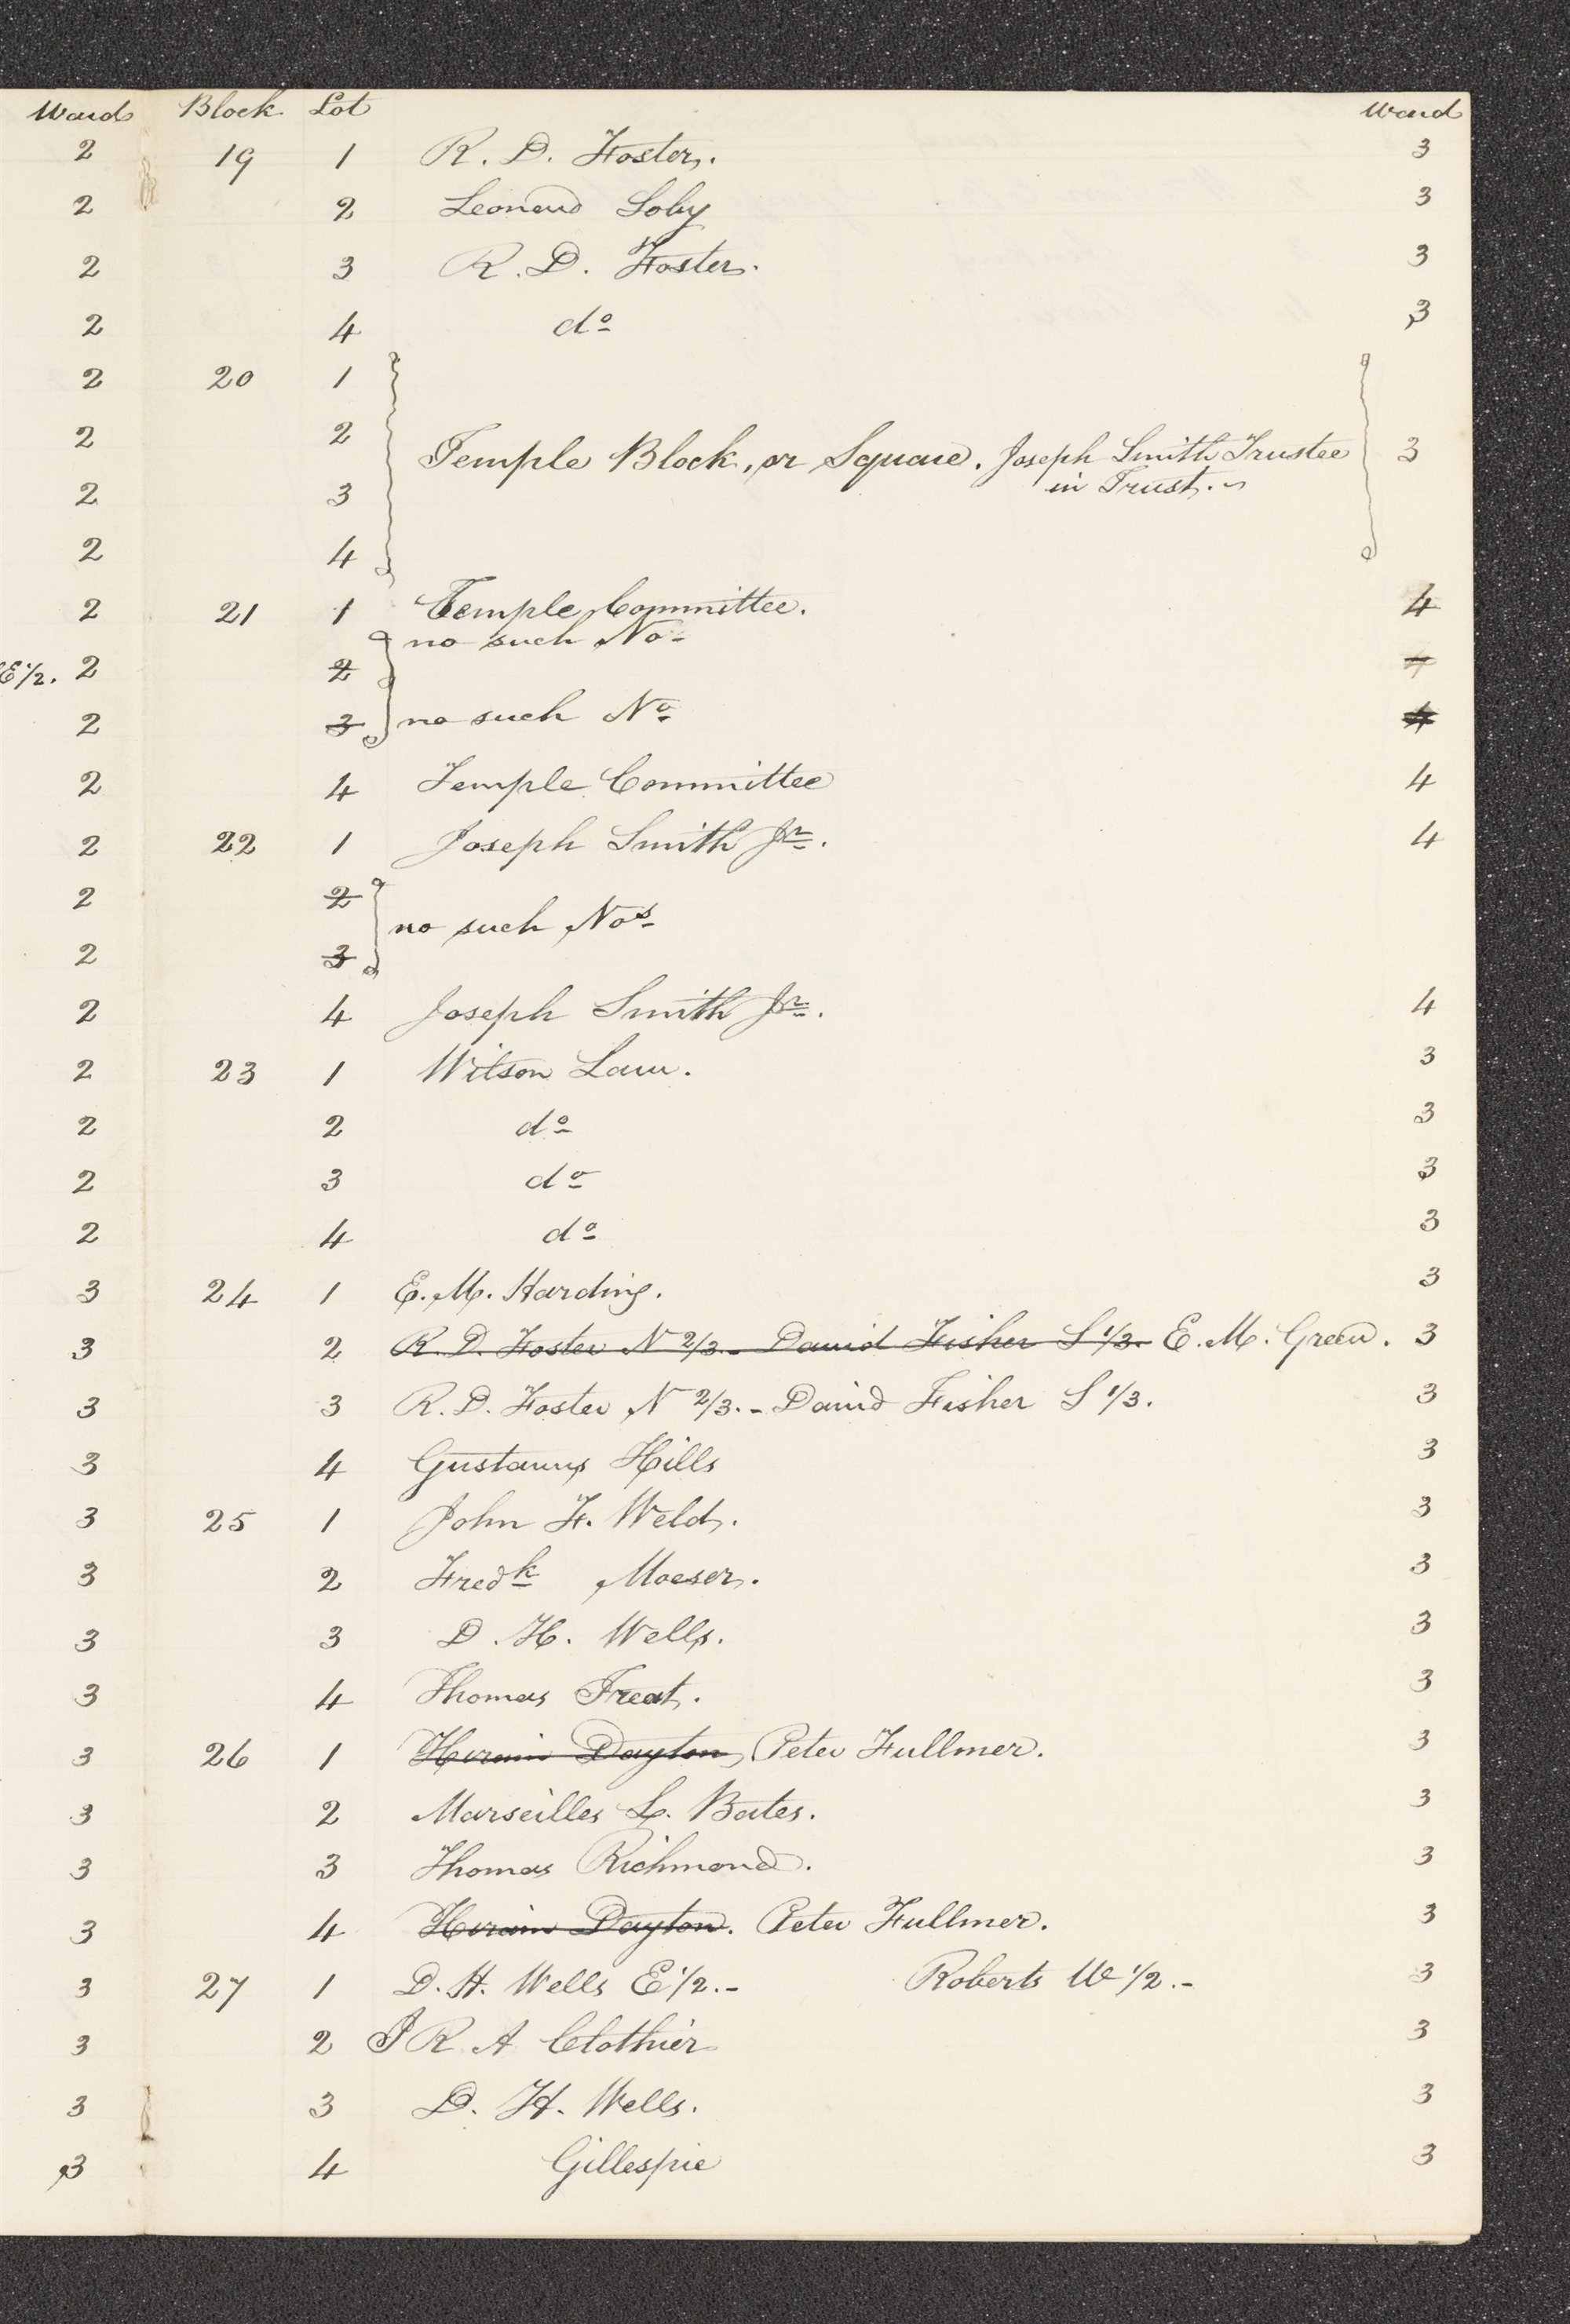 Ward Block Lot Ward
2 19 1 R. D. Foster. 3
2 2 Leonard Soby 3
2 3 R. D. Foster. 3
2 4 do 3
2 20 1
2 2 Temple Block, or Square. Joseph Smith Trustee 3
2 3 in Trust.
2 4
2 21 1 Temple Committee. 4
no such No.
E 1/2. 2 2 4
2 3 no such No 4
2 4 Temple Committee 4
2 22 1 Joseph Smith Jr. 4
2 2
no such Nos
2 3
2 4 Joseph Smith Jr. 4
2 23 1 Wilson Law. 3
2 2 do 3
2 3 do 3
2 4 do 3
3 24 1 E. M. Harding. 3
3 2 R. D. Foster N 2/3. - David Fisher S 1/3. E. M. Green. 3
3 3 R. D. Foster N 2/3. - David Fisher S 1/3. 3
3 4 Gustavus Hills 3
3 25 1 John F. Weld. 3
3 2 Fredk Moeser. 3
3 3 D. H. Wells. 3
3 4 Thomas Treat. 3
3 26 1 Hiram Dayton, Peter Fullmer. 3
3 2 Marseilles L. Bates. 3
3 3 Thomas Richmond. 3
3 4 Hiram Dayton. Peter Fullmer. 3
3 27 1 D. H. Wells E 1/2. - Roberts W 1/2. - 3
3 2 I R A Clothier 3
3 3 D. H. Wells. 3
3 4 Gillespie 3